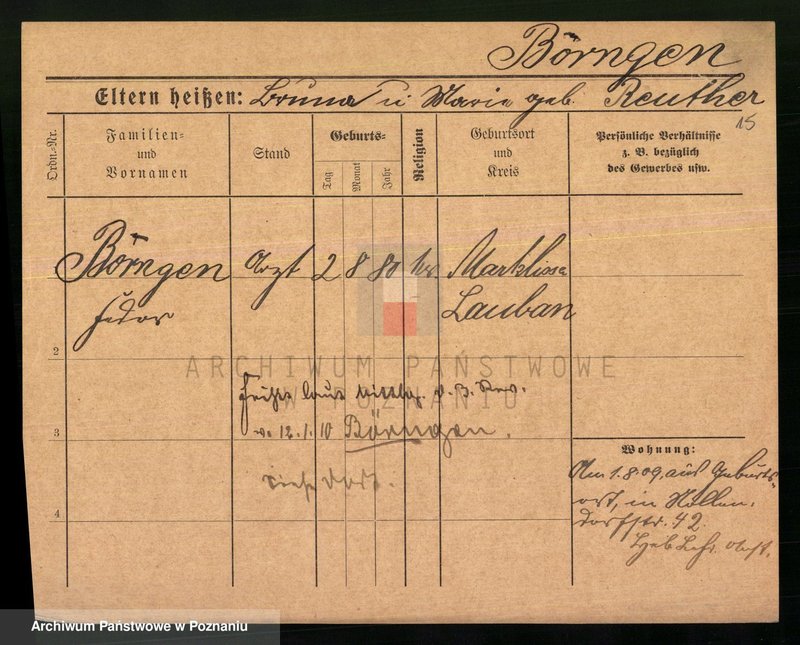 Börngen
Eltern heißen: Bruno u. Marie geb. Reuther
15
Ordn.-Nr.
Familien-
und
Vornamen
Stand
Geburts-
Tag
Monat
Jahr
Religion
Geburtsort
und
Kreis
Persönliche Verhältnisse
z. B. bezüglich
des Gewerbes usw.
Börngen Arzt 2 8 80 Marklissa
Fedor Lauban
2
ARCHIWUM PAŃSTWOWE
W POZNANIU
laut v. 3. Rev.
3
v. 12.1.10 Börngen.
siehe dort.
4
Wohnung:
Am 1.8.09, aus Geburts-
ort, in Hollen-
dorfstr. 42
Archiwum Państwowe w Poznaniu